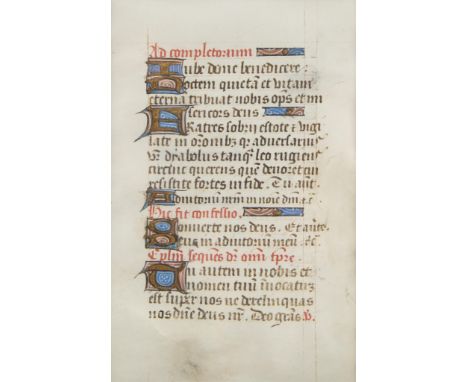 Ad completorium
Iube done benedicere:
Noctem quietã et vitam
eternã tribuat nobis op̃s et mi
sericors deus
Fratres sobrii estote ⁊ vigi
late in or̃onibꝫ qr̃ adversariꝰ
vr̃ dyabolus tanqꝫ leo rugiens
circuit querens quẽ devoret cui
resistite fortes in fide. Tu aut̃
Adiutorium nr̃m in noiẽ dñi. ⁊c̃
Hic fit confessio.
Converte nos deus. Et aũte
Deus in adiutoriũ meũ. ⁊c̃
Tu autem in nobis es
nomen tuũ ĩvocatũ
est super nos ne derelinquas
nos dñe deus nr̃. Deo grãs. V.